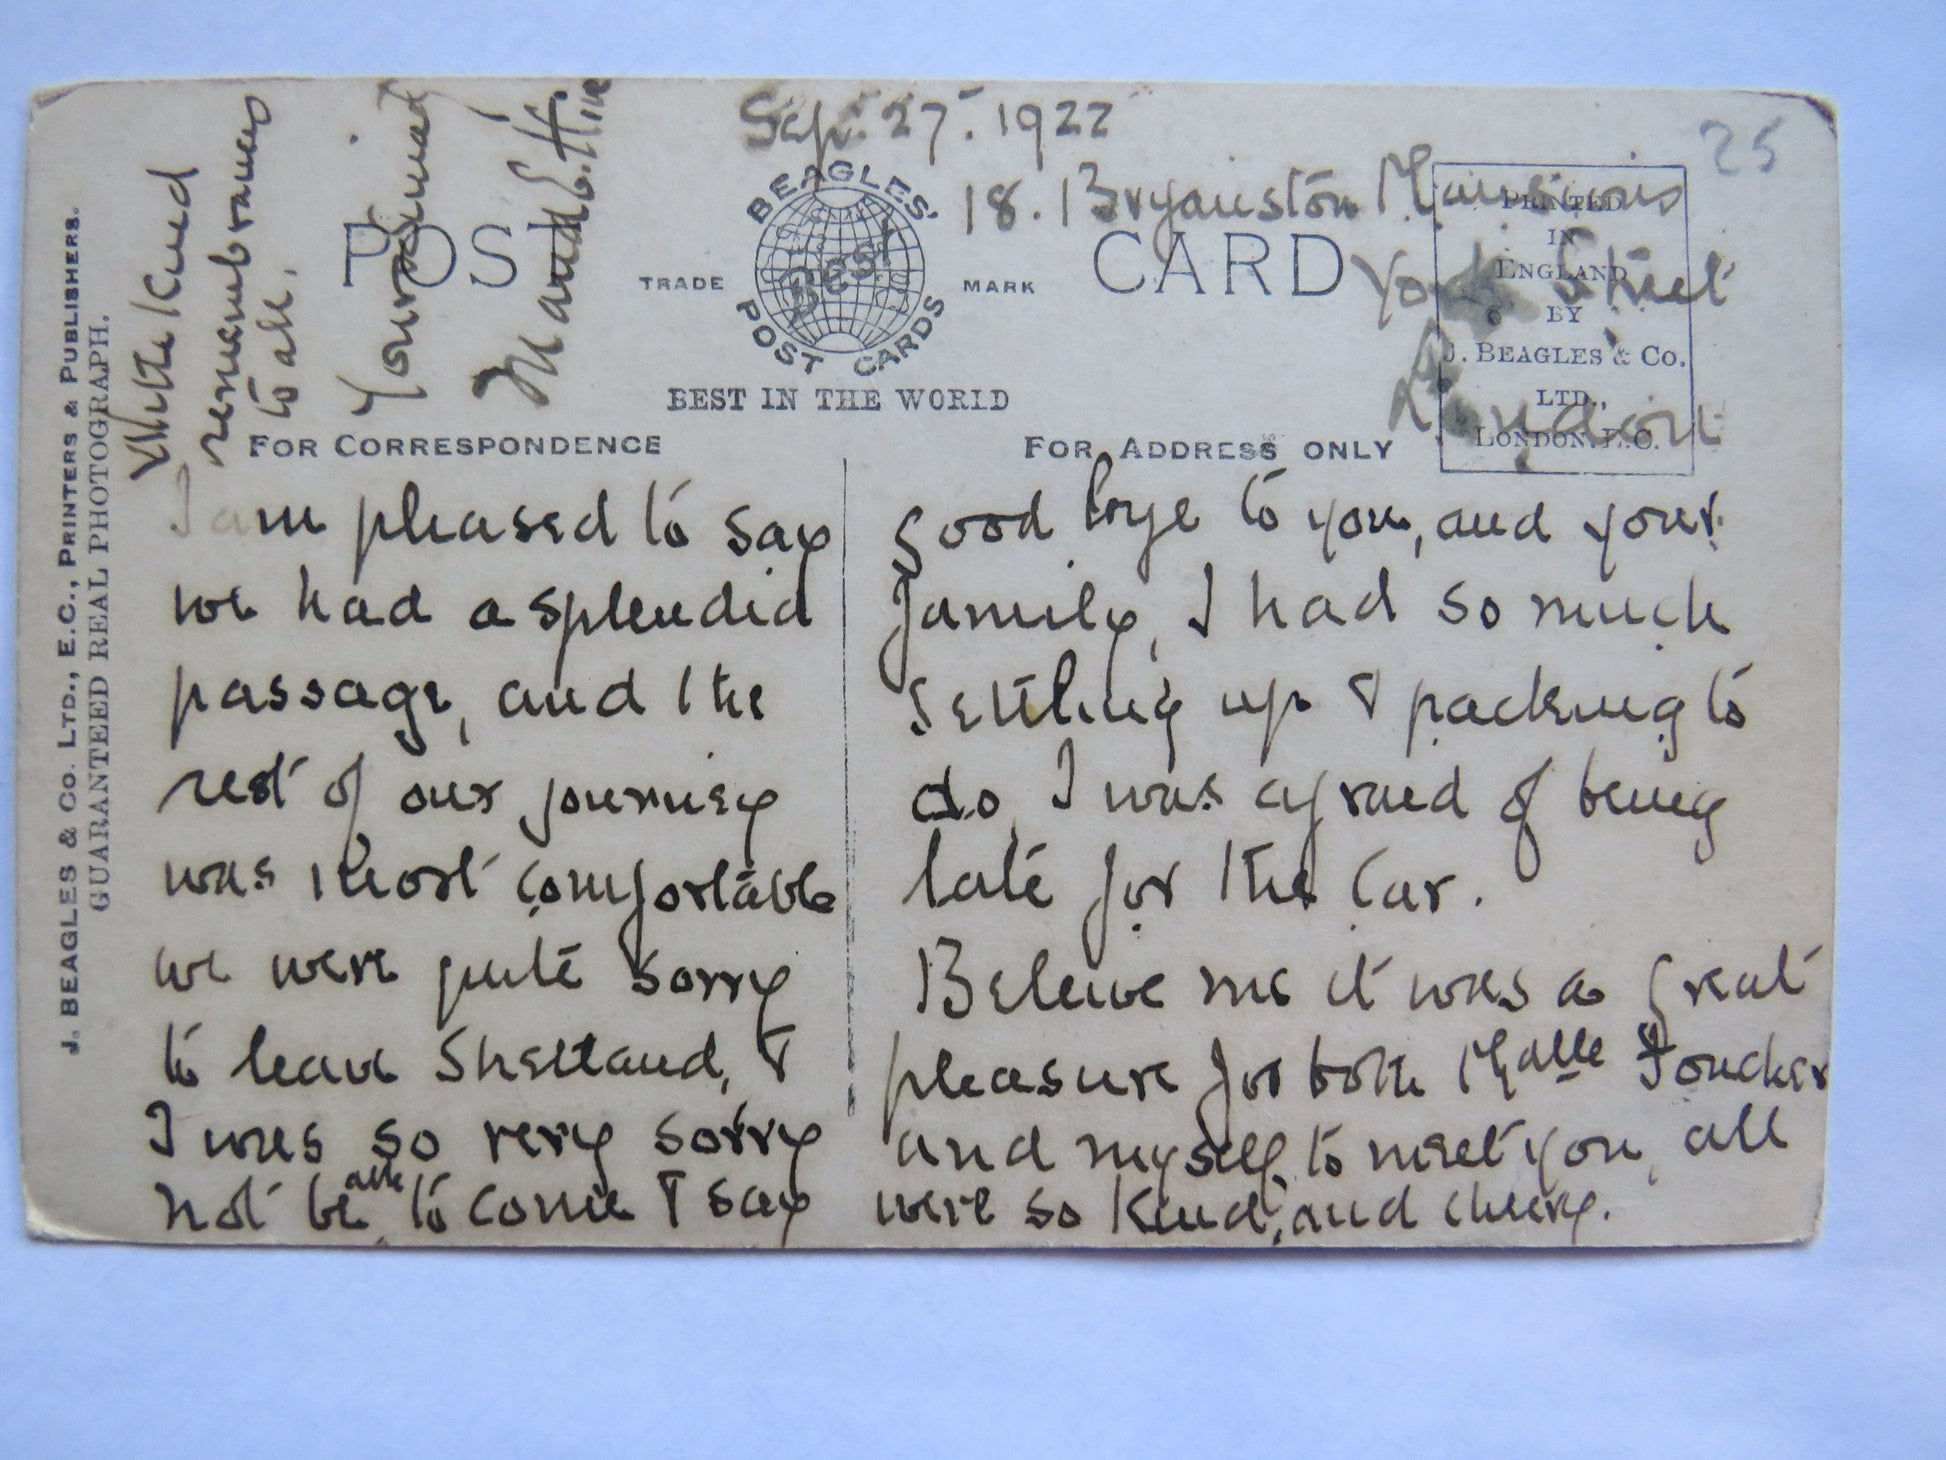 Sep. 27. 1922
25
18. Bryanston Mansions
York Street
London
POST CARD
BEAGLES'
Best
POST CARDS
TRADE MARK
BEST IN THE WORLD
PRINTED
IN
ENGLAND
BY
J. BEAGLES & Co.
LTD.,
LONDON. E.C.
J. BEAGLES & Co. LTD., E.C., PRINTERS & PUBLISHERS.
GUARANTEED REAL PHOTOGRAPH.
FOR CORRESPONDENCE
FOR ADDRESS ONLY
I am pleased to say
we had a splendid
passage, and the
rest of our journey
was most comfortable
we were quite sorry
to leave Shetland, &
I was so very sorry
not be able to come & say
good bye to you, and your
family, I had so much
settling up & packing to
do, I was afraid of being
late for the car.
Believe me it was a great
pleasure for both Malle
and myself, to meet you, all
were so kind, and cheery.
With kind
remembrances
to all.
Yours
Maud E.